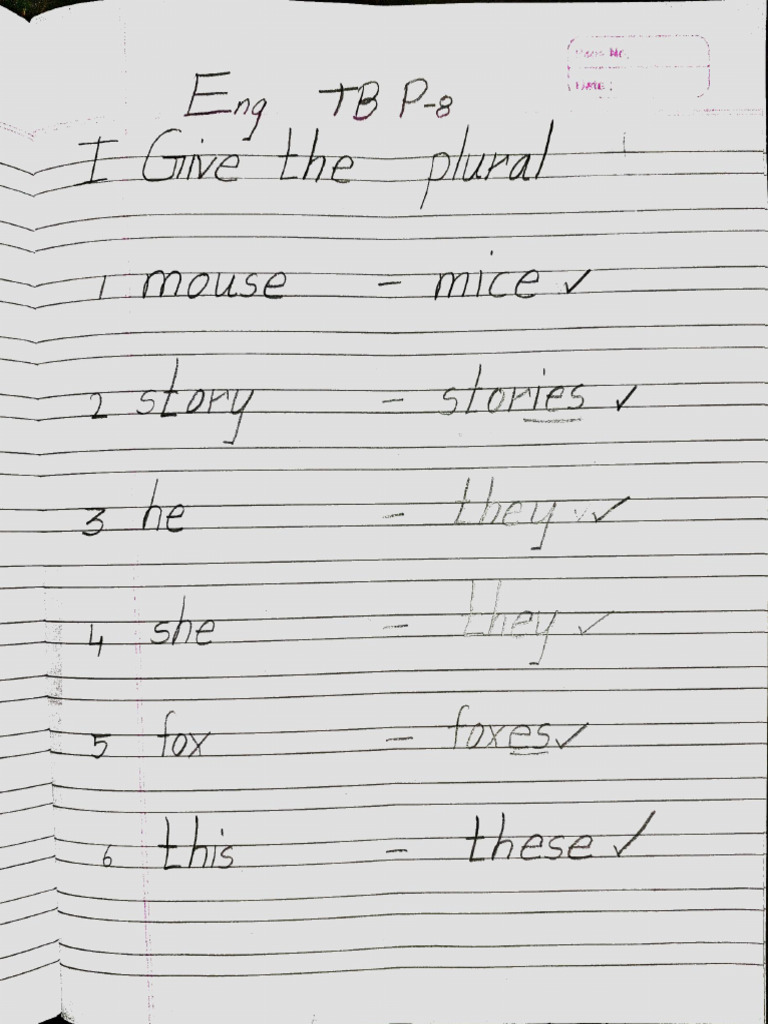 Eng TB P-8
I Give the plural
1 mouse - mice ✓
2 story - stories ✓
3 he - they ✓
4 she - they ✓
5 fox - foxes ✓
6 this - these ✓